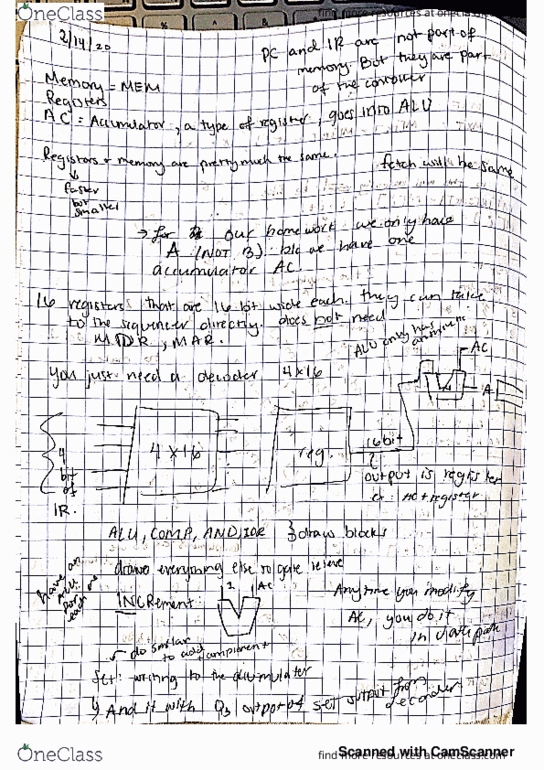 OneClass
find more resources at oneclass.com
2/14/20
PC and IR are not part of
memory. But they are part
of the computer
Memory = MEM
Registers
AC = Accumulator, a type of register, goes into ALU
Registers + memory are pretty much the same.
fetch will be same
faster
but
smaller
→ for our homework we only have
A (NOT B) b/c we have one
accumulator AC.
16 registers that are 16 bit wide each. they can talk
to the sequencer directly. does not need
MDR, MAR.
ALU only has
AC
You just need a decoder 4x16
A
4
bit
of
IR.
4x16
reg.
16bit
output is register
AC + register
ALU, COMP, AND, IOR } draw blocks
draw everything else to gate
have an
each one
INCRement
1
AC
Anytime you modify
AC, you do it
in data path
do similar
to add component
Set: writing to the accumulator
And it with Q3 output of set output from
decoder
OneClass
find more resources at oneclass.com
Scanned with CamScanner